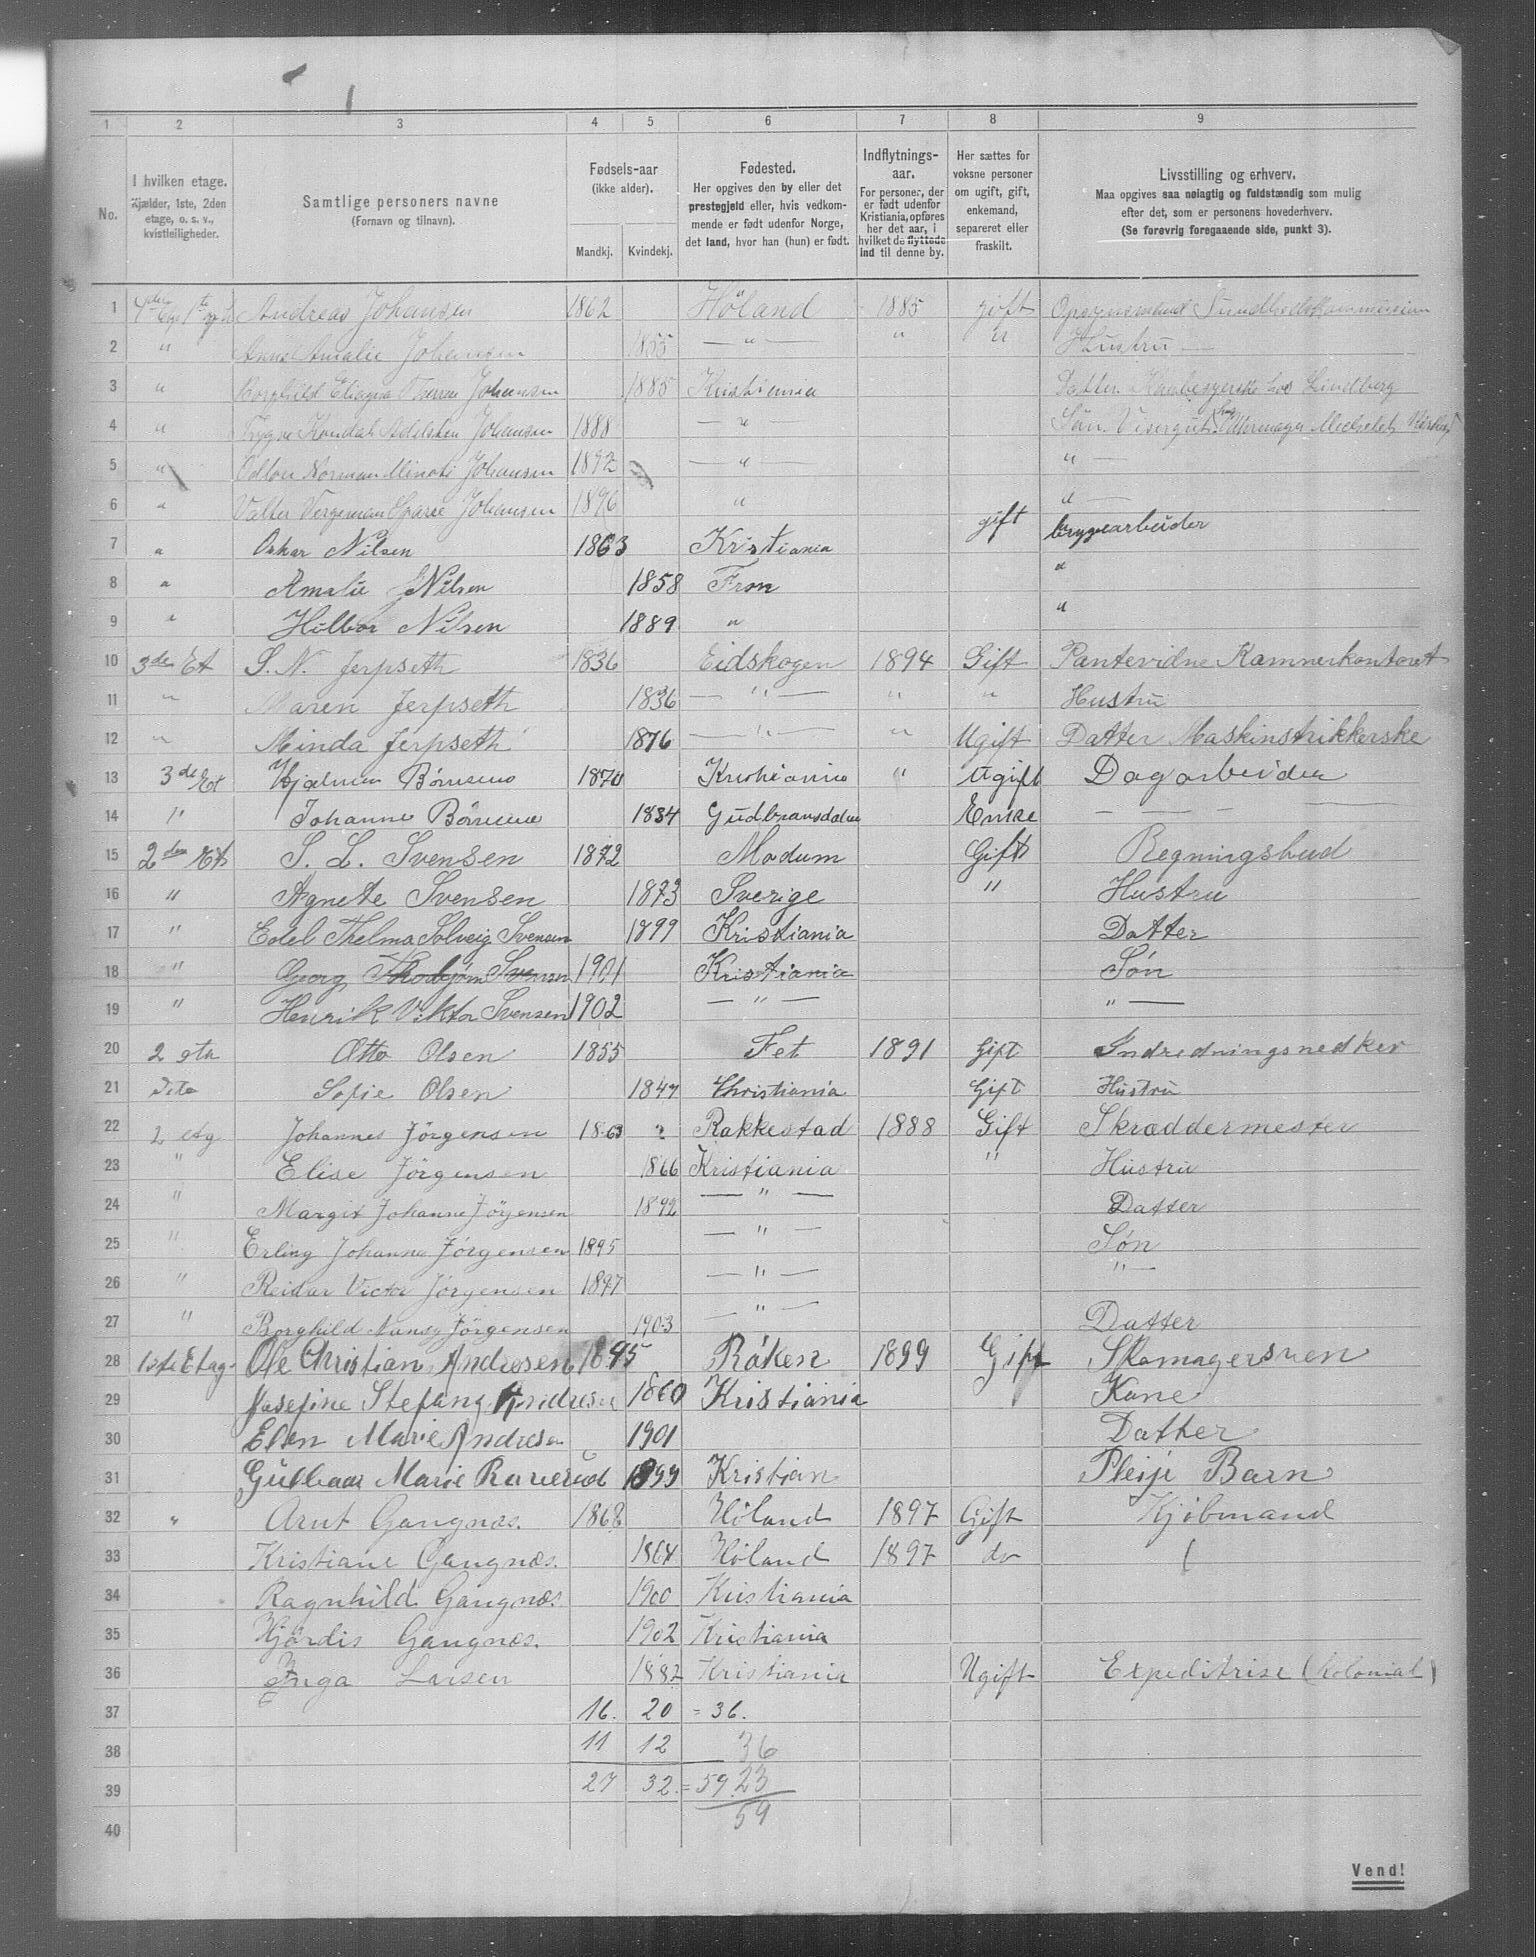 1 2 3 4 5 6 7 8 9
No.
I hvilken etage.
Kjælder, 1ste, 2den
etage, o. s. v.,
kvistleiligheder.
Samtlige personers navne
(Fornavn og tilnavn).
Fødsels-aar
(ikke alder).
Mandkj. Kvindekj.
Fødested.
Her opgives den by eller det
prestegjeld eller, hvis vedkom-
mende er født udenfor Norge,
det land, hvor han (hun) er født.
Indflytnings-
aar.
For personer, der
er født udenfor
Kristiania, opføres
her det aar, i
hvilket de flyttede
ind til denne by.
Her sættes for
voksne personer
om ugift, gift,
enkemand,
separeret eller
fraskilt.
Livsstilling og erhverv.
Maa opgives saa nøiagtig og fuldstændig som mulig
efter det, som er personens hovederhverv.
(Se forøvrig foregaaende side, punkt 3).
1 Andreas Johansen 1862 Höland 1885 gift Opsynsmand Sundhedskommission
2 " Anne Amalie Johansen 1855 — " — " " Hustru —
3 " Johansen 1885 Kristiania Datter. Lindberg
4 " Trygve Johansen 1888 — " — Søn. Visergut
5 " Norman Johansen 1892 — " — " —
6 " Valter Johansen 1896 " " —
7 " Oskar Nilsen 1863 Kristiania gift bryggearbeider
8 " Amalie Nilsen 1858 Fron "
9 " Hilbor Nilsen 1889 " "
10 3den Et S. N. Jerpseth 1836 Eidskogen 1894 Gift Pantevidne Kamnerkontoret
11 " Maren Jerpseth 1836 — " — " " Hustru
12 " Minda Jerpseth 1876 — " — " Ugift Datter Maskinstrikkerske
13 3de Et Hjalmar Børresen 1870 Kristiania " Ugift Dagarbeider
14 " Johanne Børresen 1834 Gudbransdalen Enke — — —
15 2den Et S. L. Svensen 1872 Modum Gift Regningsbud
16 " Agnete Svensen 1873 Sverige " Hustru
17 " Edel Thelma Solveig Svensen 1899 Kristiania Datter
18 " Georg Thorbjørn Svensen 1901 Kristiania Søn
19 " Henrik Viktor Svensen 1902 — " — " —
20 2 eta Otto Olsen 1855 Fet 1891 Gift Indredningsnedker
21 Sofie Olsen 1847 Christiania Gift Hustru
22 2 etg Johannes Jörgensen 1863 " Rakkestad 1888 Gift Skræddermester
23 " Elise Jörgensen 1866 Kristiania " Hustru
24 " Margit Johanne Jörgensen 1892 — " — Datter
25 " Erling Johannes Jörgensen 1895 — " — Søn
26 " Reidar Victor Jörgensen 1897 — " — " —
27 " Borghild Nancy Jörgensen 1903 — " — Datter
28 1ste Etag. Ole Christian Andresen 1845 Röken 1899 Gift Skomagersven
29 Josefine Stefana Andresen 1860 Kristiania Kone
30 Elen Marie Andresen 1901 Datter
31 Gulbaar Marie 1899 Kristian Pleije Barn
32 " Arnt Gangnæs. 1868 Höland 1897 Gift Kjöbmand
33 Kristiane Gangnæs. 1864 Höland 1897 do (
34 Ragnhild Gangnæs. 1900 Kristiania
35 Hjördis Gangnæs. 1902 Kristiania
36 Inga Larsen 1882 Kristiania Ugift Expeditrise (kolonial)
37 16. 20 = 36.
38 11 12 36
39 27 32 = 59 23
40 59
Vend!